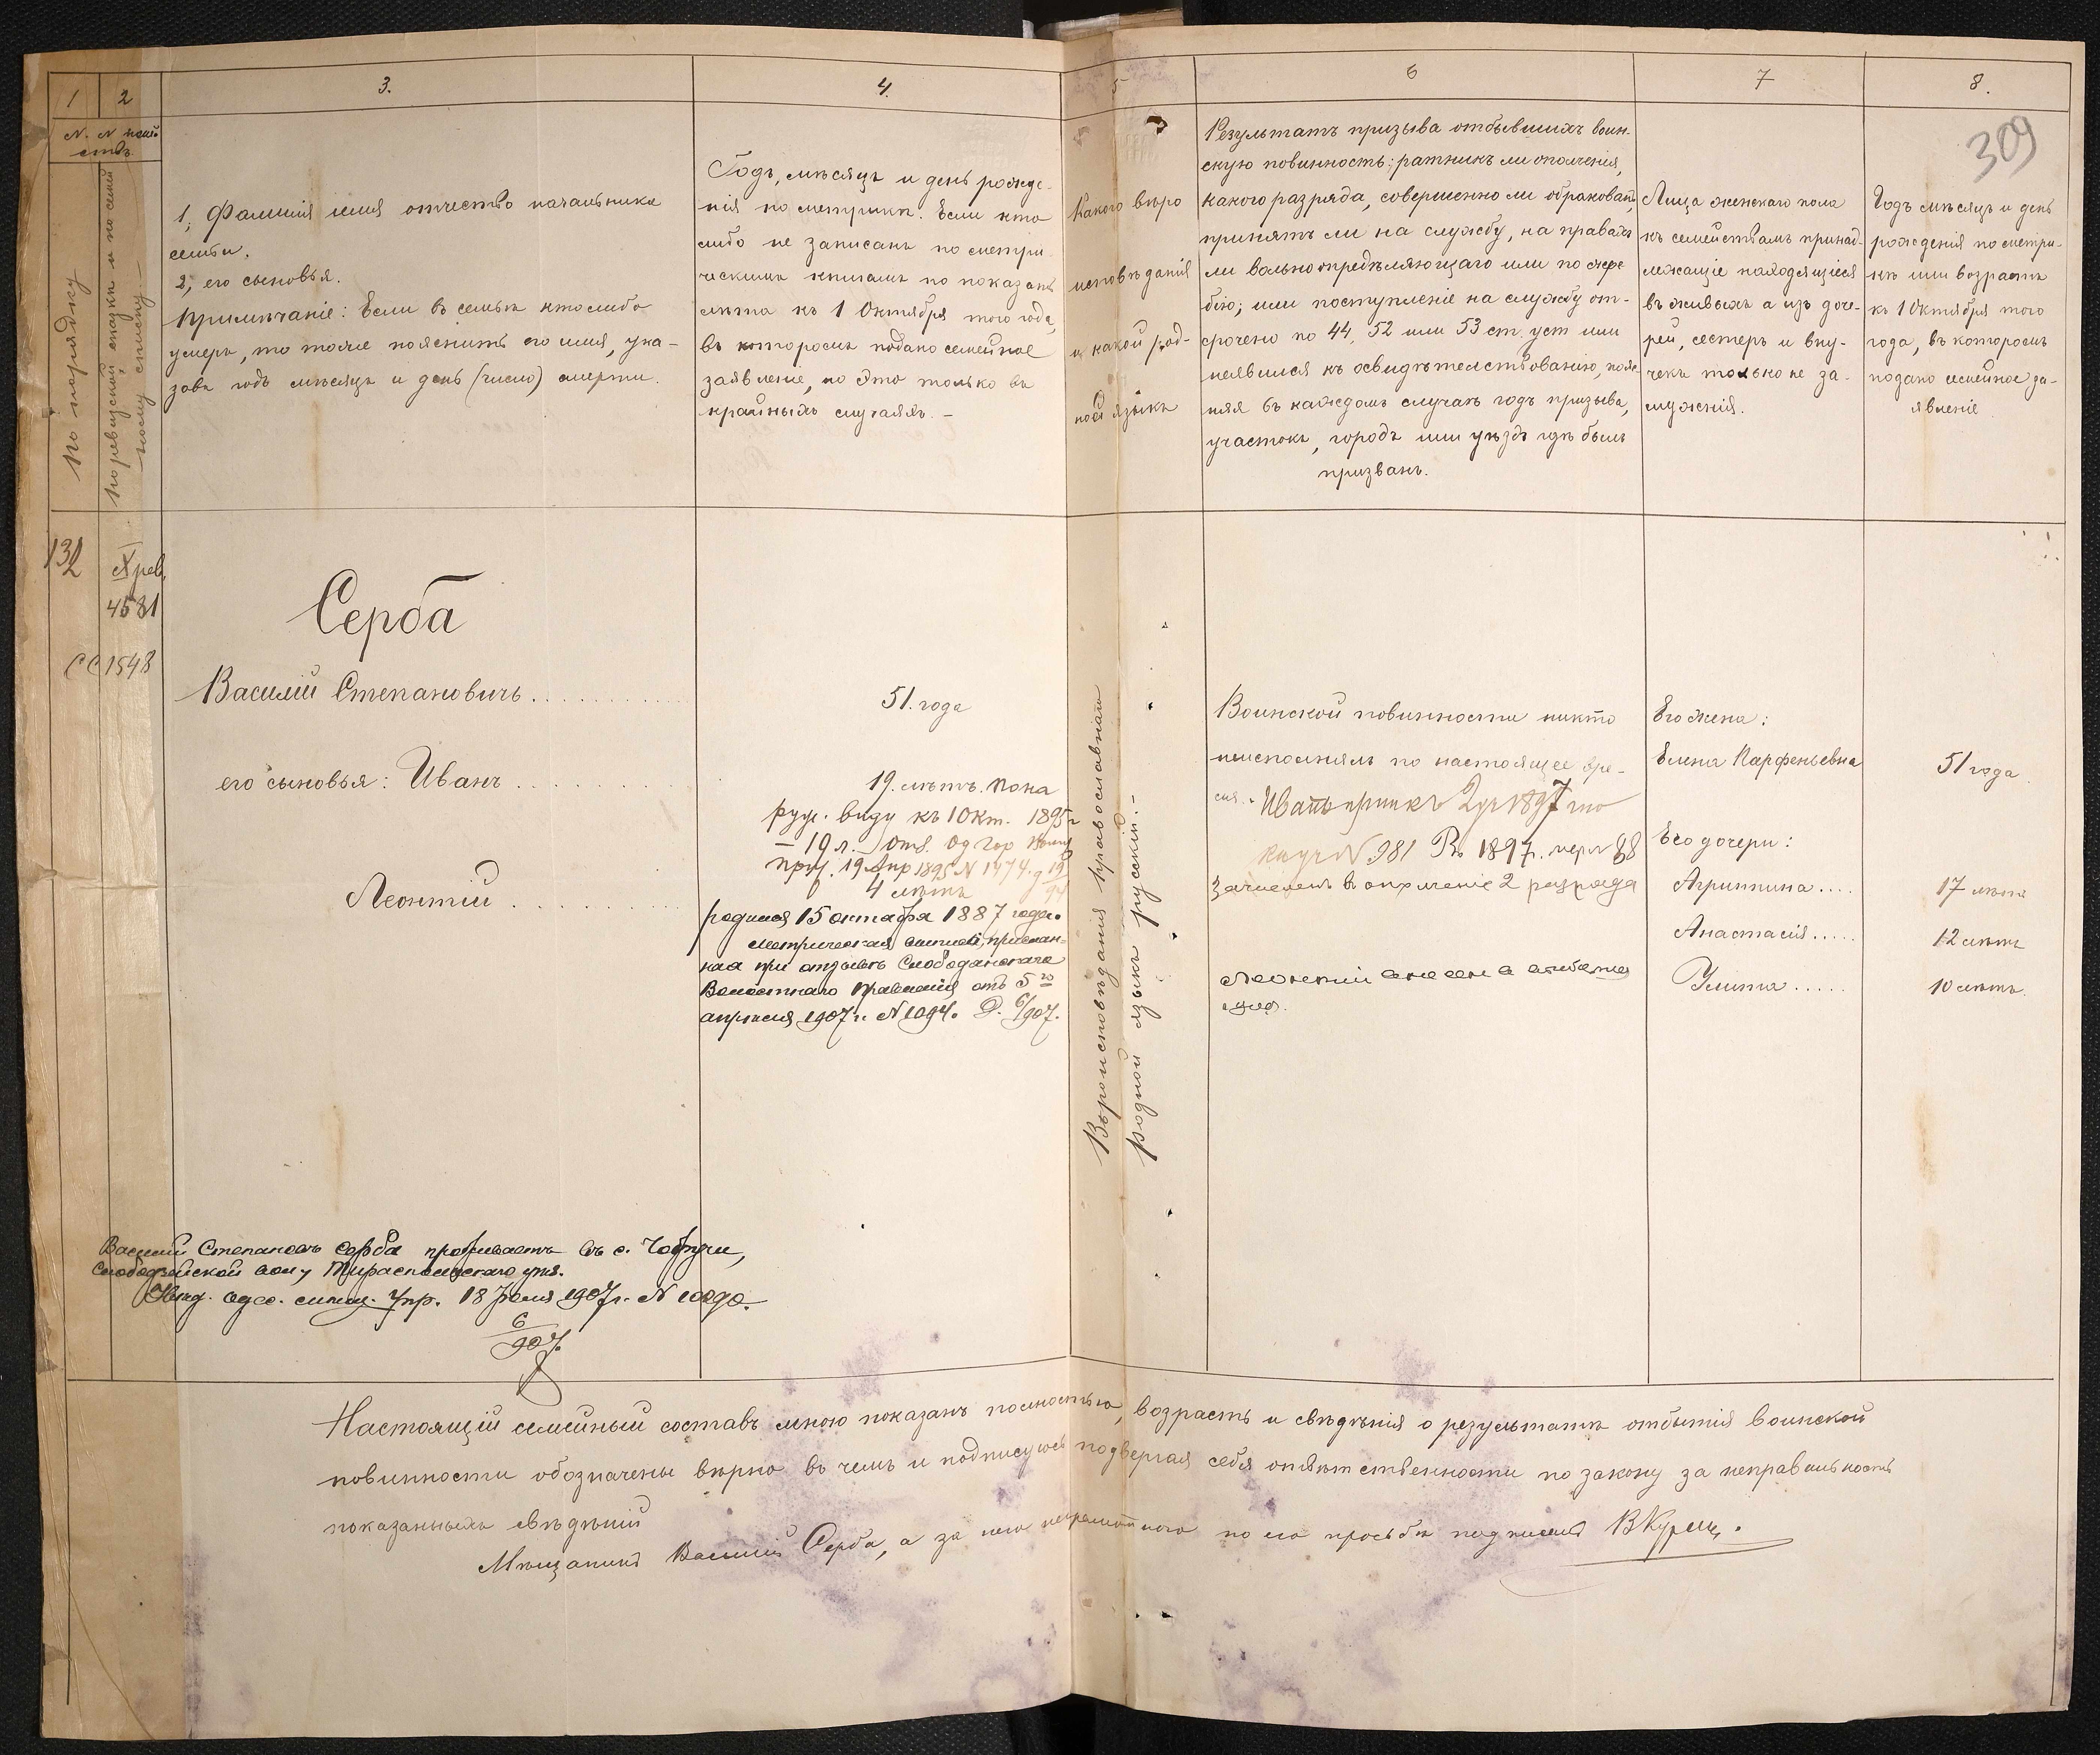 1
2
3.
4.
5
6
7
8.
309
N. N
по порядку
по ревизской сказки и по семей
ному списку
1, Фамилія имя отчество начальника
семьи.
2, его сыновья.
Примѣчаніе: Если въ семьѣ кто либо
умеръ, то тоже пояснить его имя, ука-
завъ годъ мѣсяцъ и день (число) смерти.
Годъ, мѣсяцъ и день рожде-
нія по метрикѣ. Если кто
либо не записанъ по метри-
ческимъ книгамъ то показать
лѣта къ 1 Октября того года,
въ которомъ подано семейное
заявленіе, но это только въ
крайныхъ случаяхъ. –
Какого вѣро
исповѣданія
и какой род-
ной языкъ
Результатъ призыва отбывшихъ воин-
скую повинность; ратникъ ли ополченія,
какого разряда, совершенно ли обракованъ,
принятъ ли на службу, на правахъ
ли вольноопредѣляющаго или по жре
бію; или поступленіе на службу от-
срочено по 44, 52 или 53 ст. уст или
неявился къ освидѣтельствованію, пояс
няя въ каждомъ случаѣ годъ призыва,
участокъ, городъ или уѣздъ гдѣ былъ
призванъ.
Лица женскаго пола
къ семействамъ принад-
лежащіе находящіеся
въ живыхъ а изъ доче-
рей, сестеръ и вну-
чекъ только не за-
мужнія.
Годъ мѣсяцъ и день
рожденія по метри-
кѣ или возрастъ
къ 1 Октября того
года, въ которомъ
подано семейное за-
явленіе
132
X рев.
4581
СС 1548
Серба
Василій Степановичъ
51. года
его сыновья: Иванъ
19. лѣтъ. по на
руж. виду къ 1 Окт. 1895 г
– 19 л. – Отз. Од Гор
19 Апр 1895 N 1474.
Леонтій
4 лѣтъ
родился 15 октября 1887 года.
Метрическая выпись, прислан-
ная при отзывѣ Слободзейскаго
Волостнаго Правленія отъ 5го
апрѣля 1907 г. N 1094. 6/907.
Вѣроисповѣданія православнаго
родной языкъ русскій. –
Воинской повинности никто
неисполнялъ по настоящее вре-
мя. Иванъ 1897
N 981 Въ 1897 г. 88
Зачисленъ въ ополченіе 2 разряда
Леонтій внесенъ въ
Его жена:
Елена Парфеньевна
51 года
Его дочери:
Агрипина....
17 лѣтъ
Анастасія.....
12 лѣтъ
Улита.....
10 лѣтъ.
Василій Степановъ Серба проживаетъ въ с. Чобручи,
Слободзейской вол, Тираспольскаго уѣз.
Одес. Упр. 18 1907 г. N 10090.
6
907.
Настоящій семейный составъ мною показанъ полностью, возрастъ и свѣдѣнія о результатѣ отбытія воинской
повинности обозначены вѣрно въ чемъ и подписуюсь подвергая себя отвѣтственности по закону за неправильность
показанныхъ свѣдѣній
Мѣщанинъ Василій Серба, а за него неграмотного по его просьбѣ подписалъ В Курецъ.